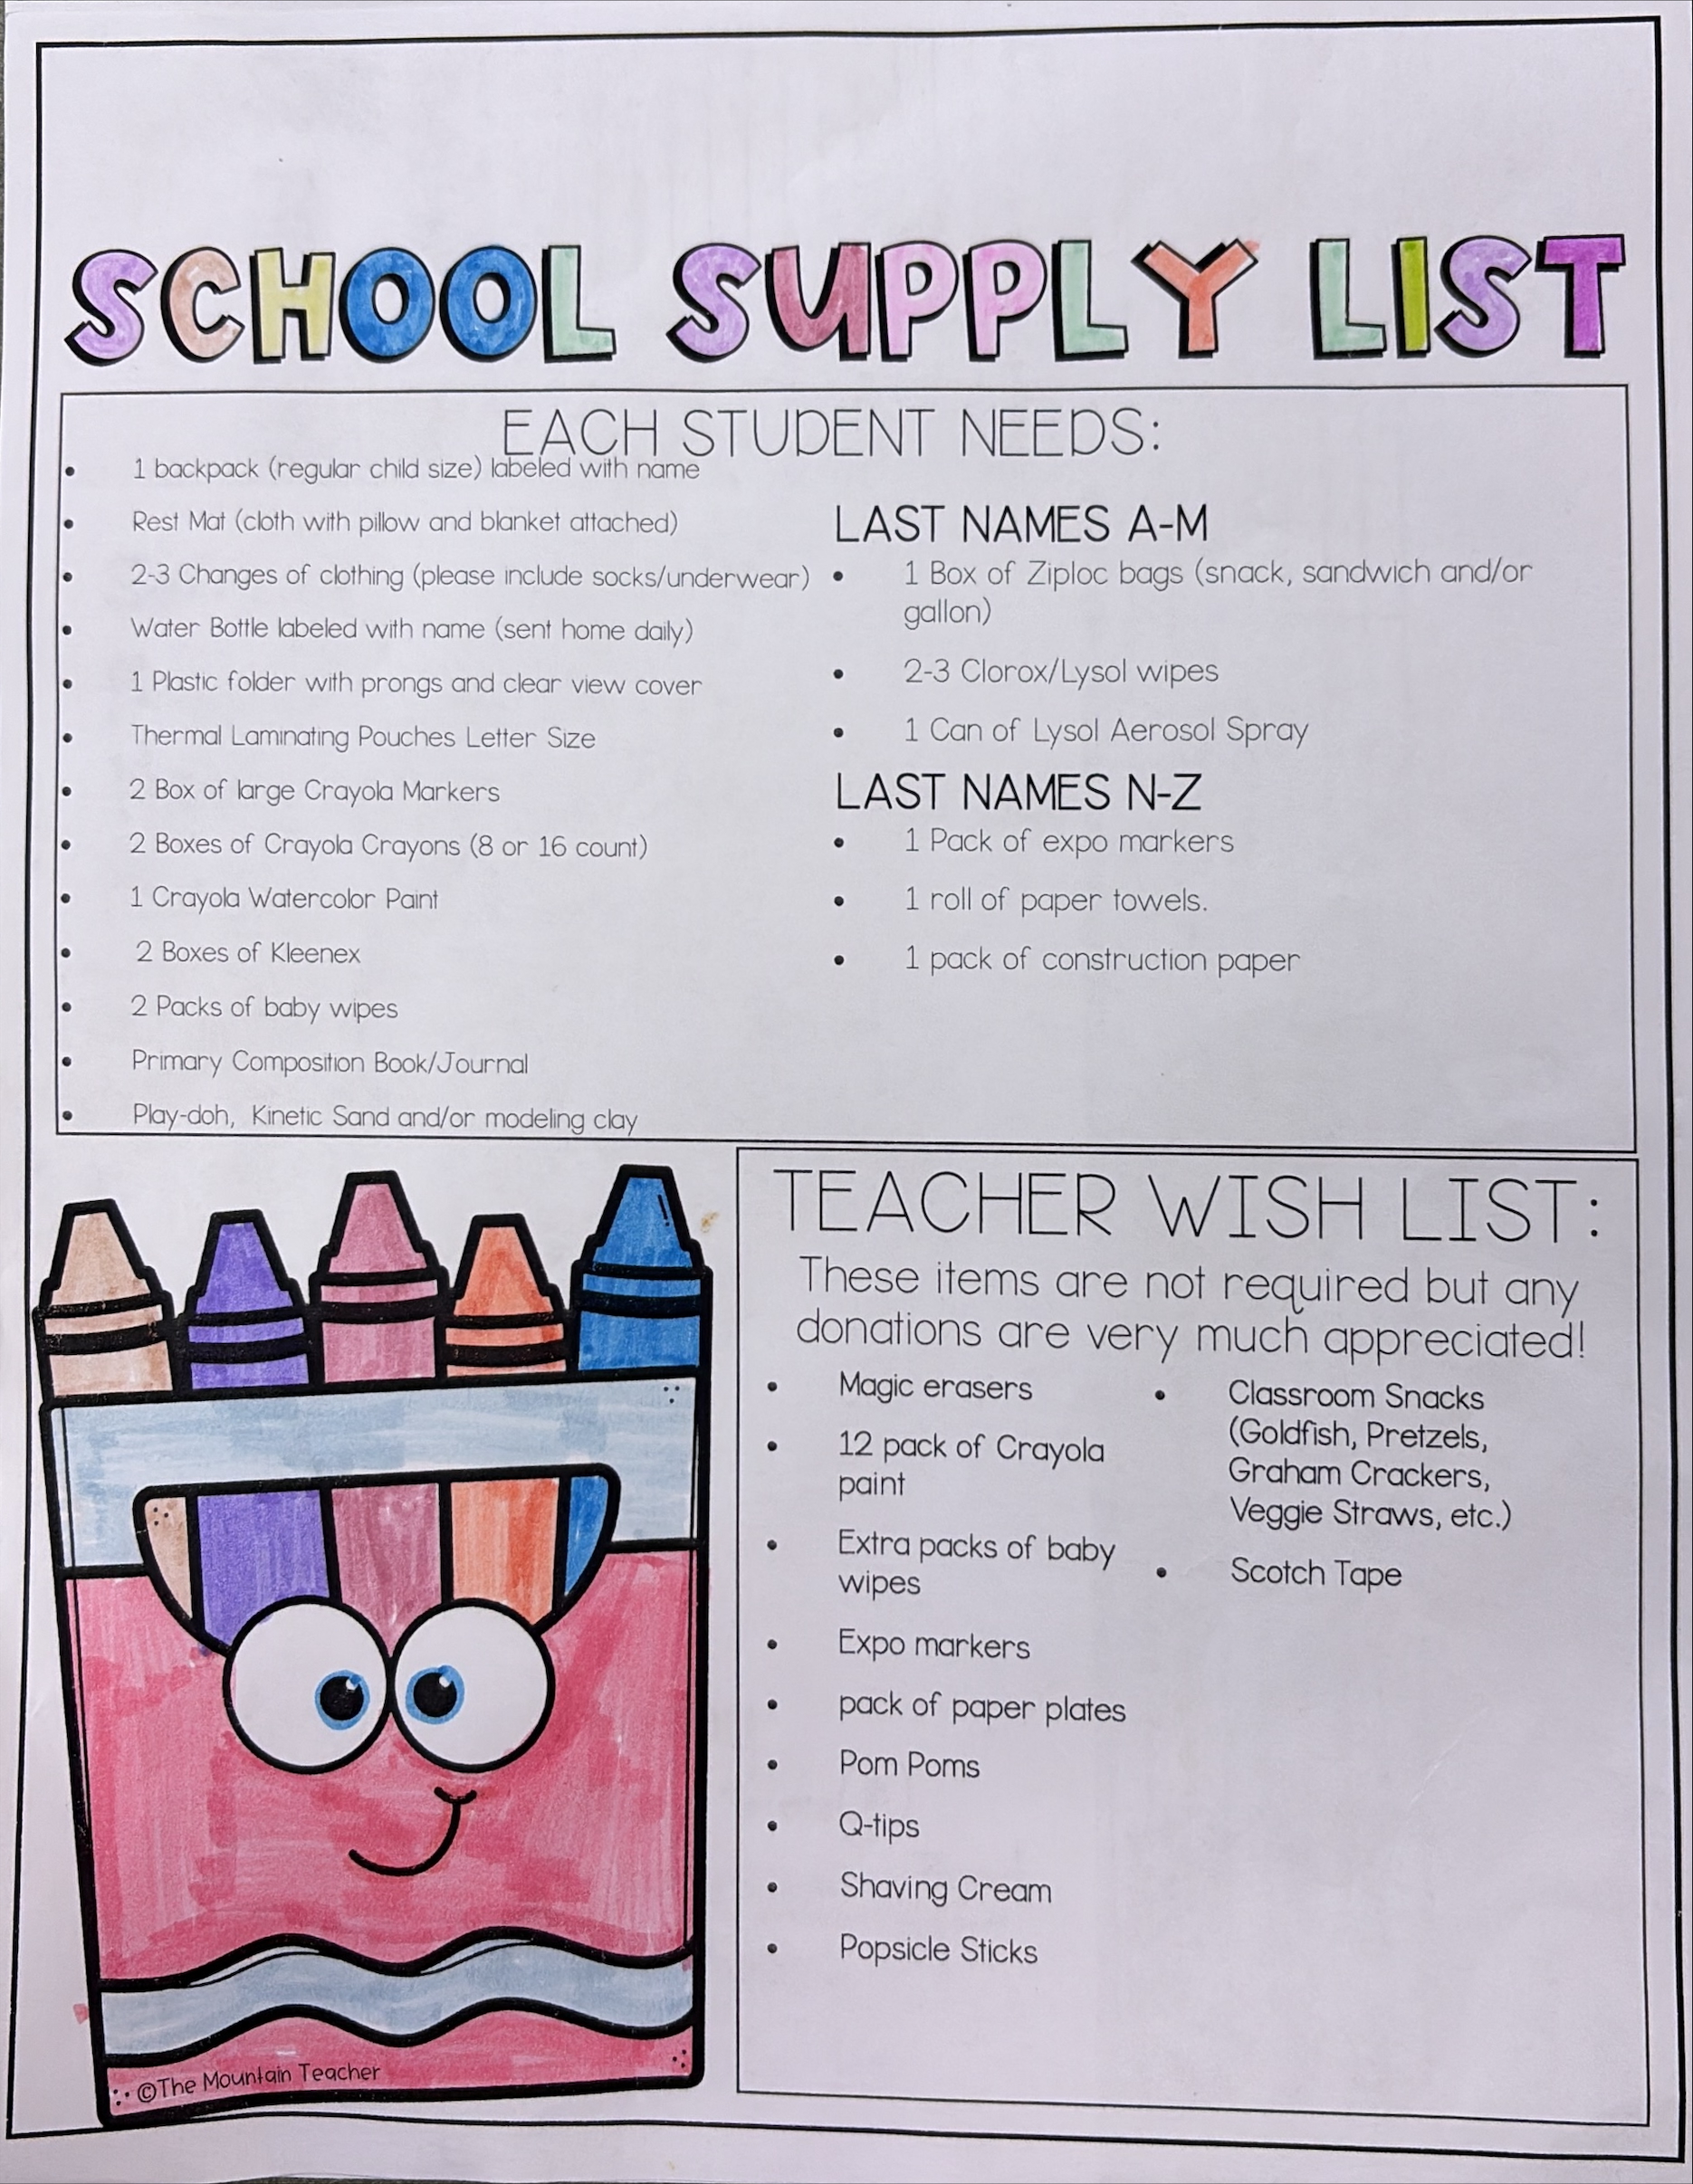 SCHOOL SUPPLY LIST
EACH STUDENT NEEDS:
1 backpack (regular child size) labeled with name
Rest Mat (cloth with pillow and blanket attached)
2-3 Changes of clothing (please include socks/underwear)
Water Bottle labeled with name (sent home daily)
1 Plastic folder with prongs and clear view cover
Thermal Laminating Pouches Letter Size
2 Box of large Crayola Markers
2 Boxes of Crayola Crayons (8 or 16 count)
1 Crayola Watercolor Paint
2 Boxes of Kleenex
2 Packs of baby wipes
Primary Composition Book/Journal
Play-doh, Kinetic Sand and/or modeling clay
LAST NAMES A-M
1 Box of Ziploc bags (snack, sandwich and/or
gallon)
2-3 Clorox/Lysol wipes
1 Can of Lysol Aerosol Spray
LAST NAMES N-Z
1 Pack of expo markers
1 roll of paper towels.
1 pack of construction paper
TEACHER WISH LIST:
These items are not required but any
donations are very much appreciated!
Magic erasers
12 pack of Crayola
paint
Extra packs of baby
wipes
Expo markers
pack of paper plates
Pom Poms
Q-tips
Shaving Cream
Popsicle Sticks
Classroom Snacks
(Goldfish, Pretzels,
Graham Crackers,
Veggie Straws, etc.)
Scotch Tape
©The Mountain Teacher